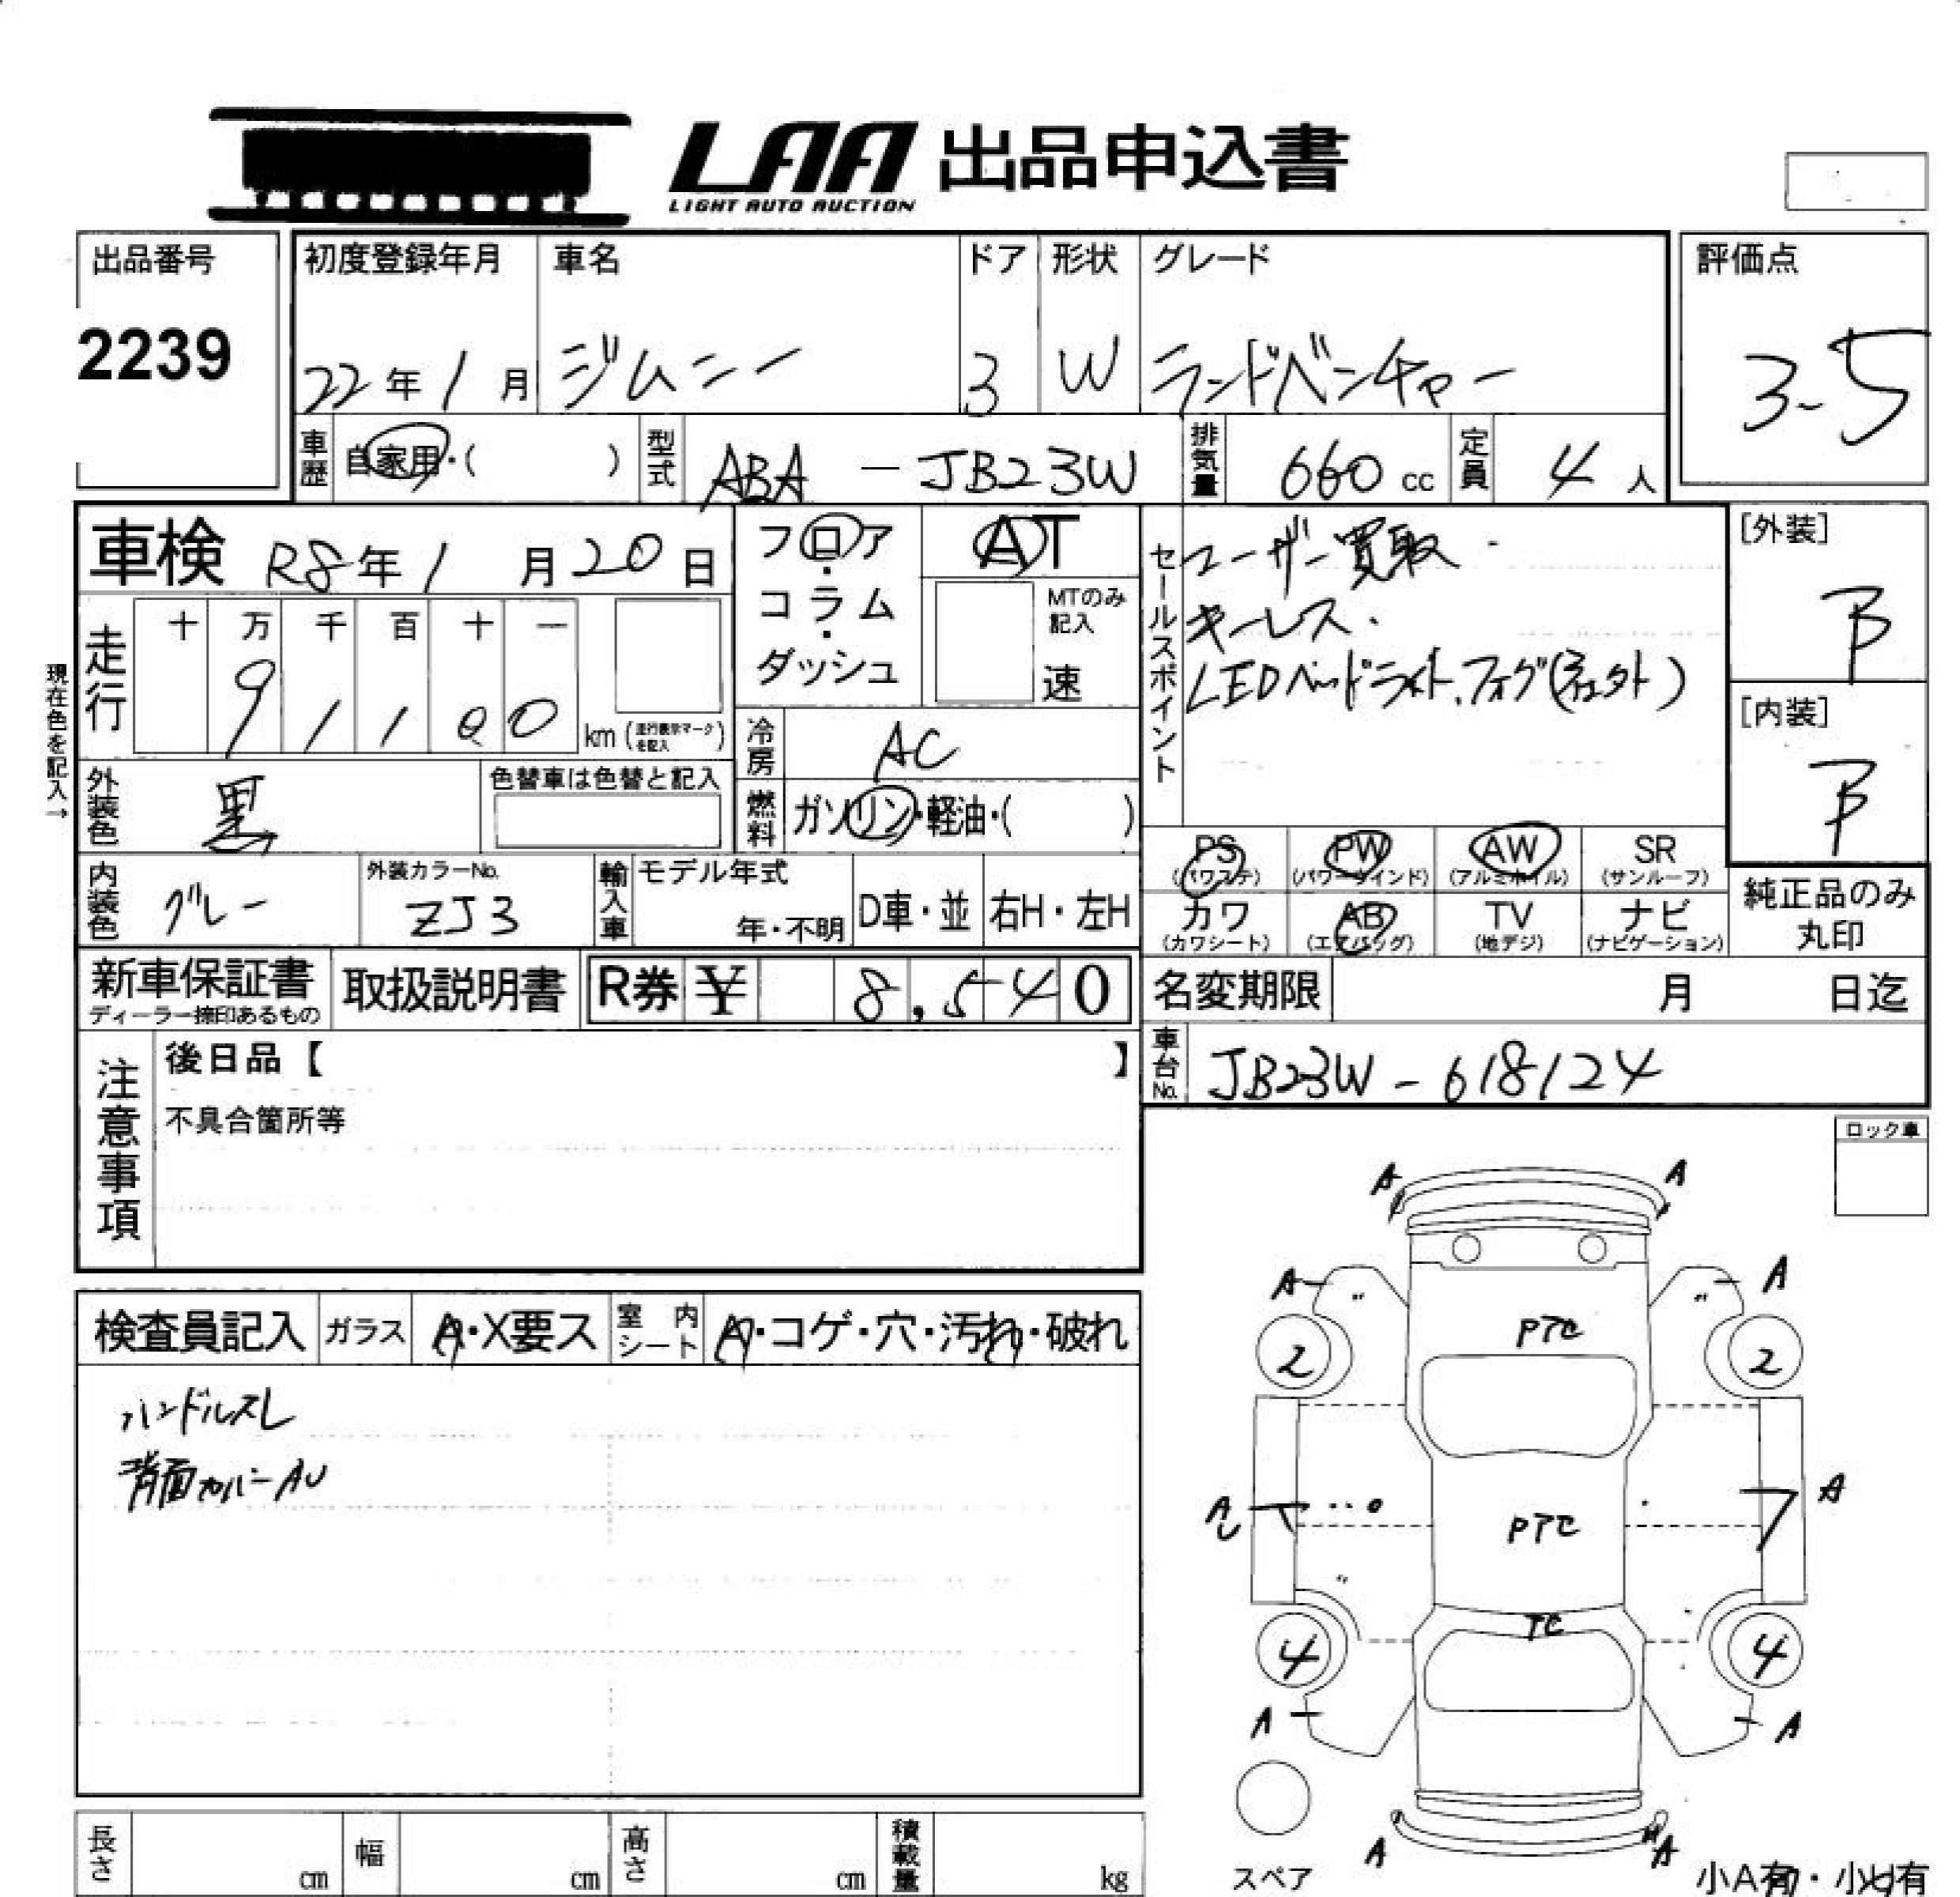 LAA 出品申込書
LIGHT AUTO AUCTION
出品番号
2239
初度登録年月
22年1月
車名
ジムニー
ドア
3
形状
W
グレード
ランドベンチャー
評価点
3-5
車歴
自家用・( )
型式
ABA - JB23W
排気量
660 cc
定員
4人
車検 R8年1月20日
現在色を記入→
走行
十 万 千 百 十 一
9 1 1 0 0
km (走行表示マークを記入)
フロア・コラム・ダッシュ
AT
MTのみ記入
速
冷房
AC
燃料
ガソリン・軽油・( )
セールスポイント
ユーザー買取
キーレス.
LEDヘッドライト.フォグ(社外)
[外装]
B
[内装]
B
外装色
黒
色替車は色替と記入
内装色
グレー
外装カラーNo.
ZJ3
輸入車
モデル年式
年・不明
D車・並
右H・左H
PS
(パワステ)
PW
(パワーウインド)
AW
(アルミホイル)
SR
(サンルーフ)
カワ
(カワシート)
AB
(エアバッグ)
TV
(地デジ)
ナビ
(ナビゲーション)
純正品のみ
丸印
新車保証書
ディーラー捺印あるもの
取扱説明書
R券 ¥ 8,540
名変期限
月 日迄
車台No.
JB23W-618124
注意事項
後日品【 】
不具合箇所等
ロック車
検査員記入
ガラス
A・X要ス
室内シート
A・コゲ・穴・汚れ・破れ
ハンドルスレ
背面カバーAU
A A
A A
PTC
2 2
A
PTC
A
TC
4 4
A A
A A
スペア
小A有・小U有
長さ
cm
幅
cm
高さ
cm
積載量
kg